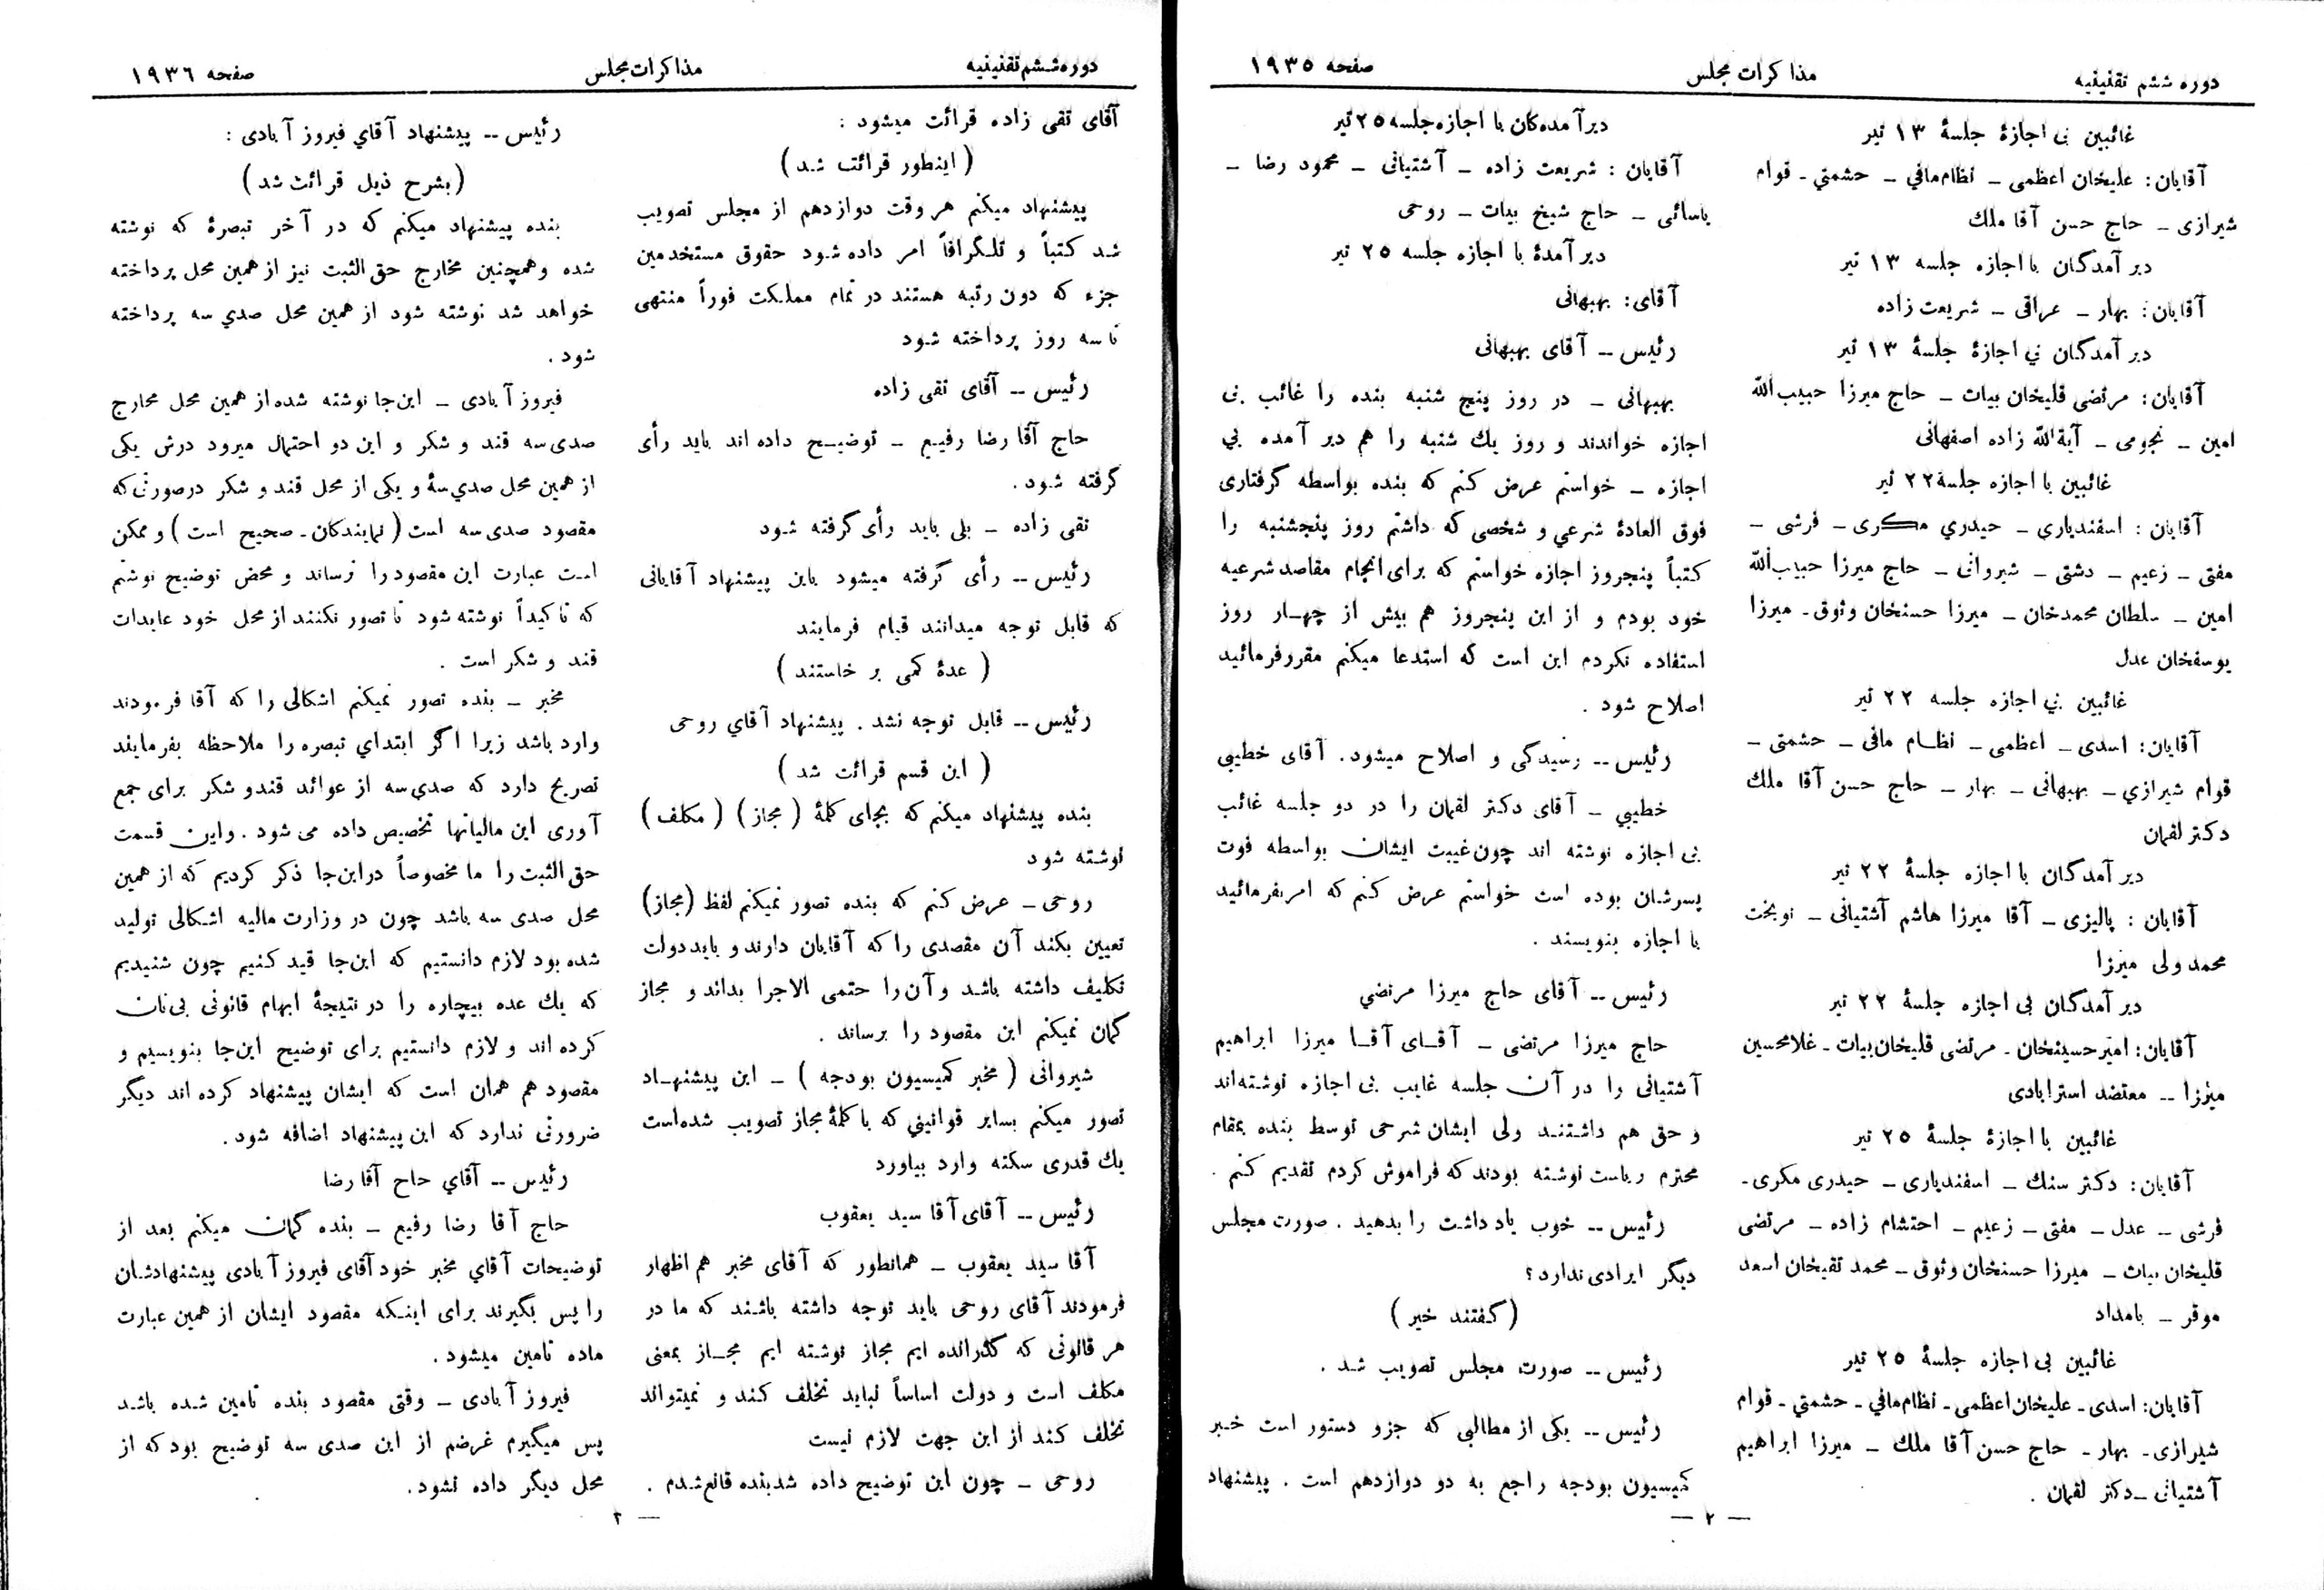 دوره ششم تقنینیه
مذاکرات مجلس
صفحه ۱۹۳۵
غائبین بی اجازۀ جلسۀ ۱۳ تیر
آقایان: علیخان اعظمی ـ نظام‌مافی ـ حشمتی ـ قوام
شیرازی ـ حاج حسن آقا ملك
دیر آمدگان با اجازه جلسه ۱۳ تیر
آقایان: بهار ـ عراقی ـ شریعت زاده
دیر آمدگان بی اجازۀ جلسۀ ۱۳ تیر
آقایان: مرتضی قلیخان بیات ـ حاج میرزا حبیب‌الله
امین ـ نجومی ـ آیة‌الله زاده اصفهانی
غائبین با اجازه جلسه ۲۲ تیر
آقایان : اسفندیاری ـ حیدری مکری ـ فرشی ـ
مفتی ـ زعیم ـ دشتی ـ شیروانی ـ حاج میرزا حبیب‌الله
امین ـ سلطان محمدخان ـ میرزا حسنخان وثوق ـ میرزا
یوسفخان عدل
غائبین بی اجازه جلسه ۲۲ تیر
آقایان: اسدی ـ اعظمی ـ نظام مافی ـ حشمتی ـ
قوام شیرازی ـ بهبهانی ـ بهار ـ حاج حسن آقا ملك
دکتر لقمان
دیر آمدگان با اجازه جلسۀ ۲۲ تیر
آقایان : پالیزی ـ آقا میرزا هاشم آشتیانی ـ نوبخت
محمد ولی میرزا
دیر آمدگان بی اجازه جلسۀ ۲۲ تیر
آقایان: امیر حسینخان ـ مرتضی قلیخان بیات ـ غلامحسین
میرزا ـــ معتضد استرابادی
غائبین با اجازۀ جلسۀ ۲۵ تیر
آقایان: دکتر سنك ـ اسفندیاری ـ حیدری مکری ـ
فرشی ـ عدل ـ مفتی ـ زعیم ـ احتشام زاده ـ مرتضی
قلیخان بیات ـ میرزا حسنخان وثوق ـ محمد تقیخان اسعد
موقر ـ بامداد
غائبین بی اجازه جلسۀ ۲۵ تیر
آقایان: اسدی ـ علیخان اعظمی ـ نظام‌مافی ـ حشمتی ـ قوام
شیرازی ـ بهار ـ حاج حسن آقا ملك ـ میرزا ابراهیم
آشتیانی ـ دکتر لقمان .
دیرآمدگان با اجازه جلسه ۲۵ تیر
آقایان : شریعت زاده ـ آشتیانی ـ محمود رضا ـ
یاسائی ـ حاج شیخ بیات ـ روحی
دیر آمدۀ با اجازه جلسه ۲۵ تیر
آقای: بهبهانی
رئیس ـــ آقای بهبهانی
بهبهانی ـ در روز پنج شنبه بنده را غائب بی
اجازه خواندند و روز یك شنبه را هم دیر آمده بی
اجازه ـ خواستم عرض کنم که بنده بواسطه گرفتاری
فوق العادۀ شرعی و شخصی که داشتم روز پنجشنبه را
کتباً پنجروز اجازه خواستم که برای انجام مقاصد شرعیه
خود بودم و از این پنجروز هم بیش از چهار روز
استفاده نکردم این است که استدعا میکنم مقرر فرمائید
اصلاح شود .
رئیس ـــ رسیدگی و اصلاح میشود. آقای خطیبی
خطیبی ـ آقای دکتر لقمان را در دو جلسه غائب
بی اجازه نوشته اند چون غیبت ایشان بواسطه فوت
پسرشان بوده است خواستم عرض کنم که امر بفرمائید
با اجازه بنویسند .
رئیس ـــ آقای حاج میرزا مرتضی
حاج میرزا مرتضی ـ آقـای آقـا میرزا ابراهیم
آشتیانی را در آن جلسه غایب بی اجازه نوشته‌اند
و حق هم داشتند ولی ایشان شرحی توسط بنده بمقام
محترم ریاست نوشته بودند که فراموش کردم تقدیم کنم .
رئیس ـــ خوب یاد داشت را بدهید . صورت مجلس
دیگر ایرادی ندارد؟
(گفتند خیر)
رئیس ـــ صورت مجلس تصویب شد .
رئیس ـــ یکی از مطالبی که جزو دستور است خبر
کمیسیون بودجه راجع به دو دوازدهم است . پیشنهاد
— ۲ —
دوره ششم تقنینیه
مذاکرات مجلس
صفحه ۱۹۳٦
آقای تقی زاده قرائت میشود :
(اینطور قرائت شد)
پیشنهاد میکنم هر وقت دوازدهم از مجلس تصویب
شد کتباً و تلگرافاً امر داده شود حقوق مستخدمین
جزء که دون رتبه هستند در تمام مملکت فوراً منتهی
تا سه روز پرداخته شود
رئیس ـــ آقای تقی زاده
حاج آقا رضا رفیع ـ توضیح داده اند باید رأی
گرفته شود .
تقی زاده ـ بلی باید رأی گرفته شود
رئیس ـــ رأی گرفته میشود باین پیشنهاد آقایانی
که قابل توجه میدانند قیام فرمایند
( عدۀ کمی بر خاستند )
رئیس ـــ قابل توجه نشد . پیشنهاد آقای روحی
( این قسم قرائت شد )
بنده پیشنهاد میکنم که بجای کلمۀ ( مجاز ) ( مکلف )
نوشته شود
روحی ـ عرض کنم که بنده تصور نمیکنم لفظ (مجاز)
تعیین بکند آن مقصدی را که آقایان دارند و باید دولت
تکلیف داشته باشد و آن را حتمی الاجرا بداند و مجاز
گمان نمیکنم این مقصود را برساند .
شیروانی ( مخبر کمیسیون بودجه ) ـ این پیشنهاد
تصور میکنم بسایر قوانینی که با کلمۀ مجاز تصویب شده‌است
یك قدری سکته وارد بیاورد
رئیس ـــ آقای آقا سید یعقوب
آقا سید یعقوب ـ همانطور که آقای مخبر هم اظهار
فرمودند آقای روحی باید توجه داشته باشند که ما در
هر قانونی که گذرانده ایم مجاز نوشته ایم مجـاز بمعنی
مکلف است و دولت اساساً نباید تخلف کند و نمیتواند
تخلف کند از این جهت لازم نیست
روحی ـ چون این توضیح داده شد بنده قانع شدم .
رئیس ـــ پیشنهاد آقای فیروز آبادی :
(بشرح ذیل قرائت شد)
بنده پیشنهاد میکنم که در آخر تبصرۀ که نوشته
شده و همچنین مخارج حق الثبت نیز از همین محل پرداخته
خواهد شد نوشته شود از همین محل صدی سه پرداخته
شود .
فیروز آبادی ـ این‌جا نوشته شده از همین محل مخارج
صدی سه قند و شکر و این دو احتمال میرود درش یکی
از همین محل صدی سۀ و یکی از محل قند و شکر در صورتی که
مقصود صدی سه است ( نمایندگان ـ صحیح است ) و ممکن
است عبارت این مقصود را نرساند و محض توضیح نوشتم
که تا کیداً نوشته شود تا تصور نکنند از محل خود عایدات
قند و شکر است .
مخبر ـ بنده تصور نمیکنم اشکالی را که آقا فرمودند
وارد باشد زیرا اگر ابتدای تبصره را ملاحظه بفرمایند
تصریح دارد که صدی سه از عوائد قند و شکر برای جمع
آوری این مالیاتها تخصیص داده می شود . و این قسمت
حق الثبت را ما مخصوصاً در این‌جا ذکر کردیم که از همین
محل صدی سه باشد چون در وزارت مالیه اشکالی تولید
شده بود لازم دانستیم که این‌جا قید کنیم چون شنیدیم
که یك عده بیچاره را در نتیجۀ ابهام قانونی بی نان
کرده اند و لازم دانستیم برای توضیح این‌جا بنویسیم و
مقصود هم همان است که ایشان پیشنهاد کرده اند دیگر
ضرورتی ندارد که این پیشنهاد اضافه شود .
رئیس ـــ آقای حاج آقا رضا
حاج آقا رضا رفیع ـ بنده گمان میکنم بعد از
توضیحات آقای مخبر خود آقای فیروز آبادی پیشنهادشان
را پس بگیرند برای اینکه مقصود ایشان از همین عبارت
ماده تامین میشود .
فیروز آبادی ـ وقتی مقصود بنده تامین شده باشد
پس میگیرم غرضم از این صدی سه توضیح بود که از
محل دیگر داده نشود .
— ۲